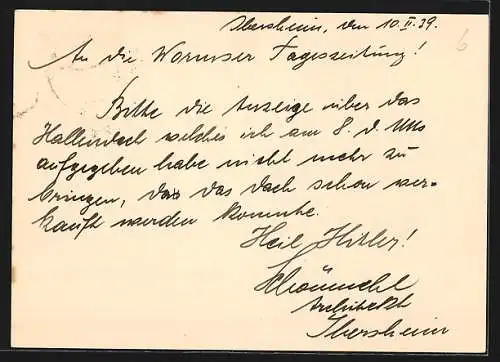 Ibersheim, den 10.II.39.
6
An die Wormser Tageszeitung!
Bitte die Anzeige über das
Hallendach welches ich am 8. d. Mts
aufgegeben habe nicht mehr zu
bringen, da das Dach schon ver-
kauft werden konnte.
Heil Hitler!
Architekt
Ibersheim